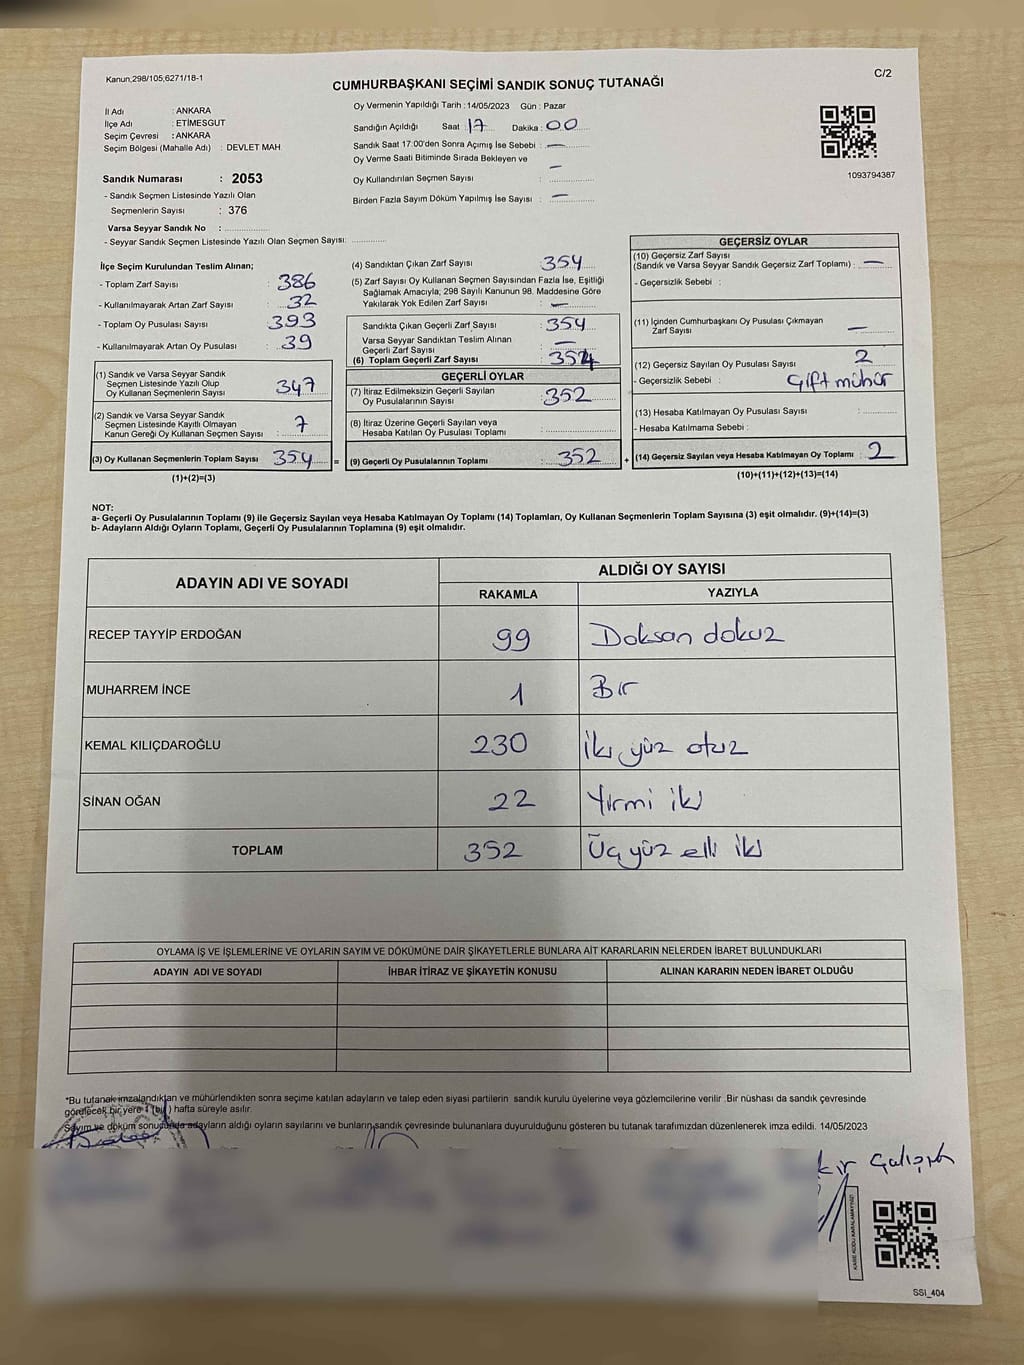 Kanun;298/105;6271/18-1
C/2
CUMHURBAŞKANI SEÇİMİ SANDIK SONUÇ TUTANAĞI
İl Adı : ANKARA
İlçe Adı : ETİMESGUT
Seçim Çevresi : ANKARA
Seçim Bölgesi (Mahalle Adı) : DEVLET MAH
Sandık Numarası : 2053
- Sandık Seçmen Listesinde Yazılı Olan
Seçmenlerin Sayısı : 376
Varsa Seyyar Sandık No :
- Seyyar Sandık Seçmen Listesinde Yazılı Olan Seçmen Sayısı:
Oy Vermenin Yapıldığı Tarih : 14/05/2023 Gün : Pazar
Sandığın Açıldığı Saat : 17 Dakika : 00
Sandık Saat 17:00'den Sonra Açımış İse Sebebi : —
Oy Verme Saati Bitiminde Sırada Bekleyen ve
Oy Kullandırılan Seçmen Sayısı : —
Birden Fazla Sayım Döküm Yapılmış İse Sayısı : —
1093794387
İlçe Seçim Kurulundan Teslim Alınan;
- Toplam Zarf Sayısı : 386
- Kullanılmayarak Artan Zarf Sayısı : 32
- Toplam Oy Pusulası Sayısı : 393
- Kullanılmayarak Artan Oy Pusulası : 39
(1) Sandık ve Varsa Seyyar Sandık
Seçmen Listesinde Yazılı Olup
Oy Kullanan Seçmenlerin Sayısı : 347
(2) Sandık ve Varsa Seyyar Sandık
Seçmen Listesinde Kayıtlı Olmayan
Kanun Gereği Oy Kullanan Seçmen Sayısı : 7
(3) Oy Kullanan Seçmenlerin Toplam Sayısı : 354
(1)+(2)=(3)
=
(4) Sandıktan Çıkan Zarf Sayısı : 354
(5) Zarf Sayısı Oy Kullanan Seçmen Sayısından Fazla İse, Eşitliği
Sağlamak Amacıyla, 298 Sayılı Kanunun 98. Maddesine Göre
Yakılarak Yok Edilen Zarf Sayısı : —
Sandıkta Çıkan Geçerli Zarf Sayısı : 354
Varsa Seyyar Sandıktan Teslim Alınan
Geçerli Zarf Sayısı : —
(6) Toplam Geçerli Zarf Sayısı : 354
GEÇERLİ OYLAR
(7) İtiraz Edilmeksizin Geçerli Sayılan
Oy Pusulalarının Sayısı : 352
(8) İtiraz Üzerine Geçerli Sayılan veya
Hesaba Katılan Oy Pusulası Toplamı :
(9) Geçerli Oy Pusulalarının Toplamı : 352
+
GEÇERSİZ OYLAR
(10) Geçersiz Zarf Sayısı
(Sandık ve Varsa Seyyar Sandık Geçersiz Zarf Toplamı) : —
- Geçersizlik Sebebi :
(11) İçinden Cumhurbaşkanı Oy Pusulası Çıkmayan
Zarf Sayısı : —
(12) Geçersiz Sayılan Oy Pusulası Sayısı : 2
- Geçersizlik Sebebi : Çift mühür
(13) Hesaba Katılmayan Oy Pusulası Sayısı :
- Hesaba Katılmama Sebebi :
(14) Geçersiz Sayılan veya Hesaba Katılmayan Oy Toplamı : 2
(10)+(11)+(12)+(13)=(14)
NOT:
a- Geçerli Oy Pusulalarının Toplamı (9) ile Geçersiz Sayılan veya Hesaba Katılmayan Oy Toplamı (14) Toplamları, Oy Kullanan Seçmenlerin Toplam Sayısına (3) eşit olmalıdır. (9)+(14)=(3)
b- Adayların Aldığı Oyların Toplamı, Geçerli Oy Pusulalarının Toplamına (9) eşit olmalıdır.
ADAYIN ADI VE SOYADI
ALDIĞI OY SAYISI
RAKAMLA YAZIYLA
RECEP TAYYİP ERDOĞAN 99 Doksan dokuz
MUHARREM İNCE 1 Bir
KEMAL KILIÇDAROĞLU 230 İki yüz otuz
SİNAN OĞAN 22 Yirmi iki
TOPLAM 352 Üç yüz elli iki
OYLAMA İŞ VE İŞLEMLERİNE VE OYLARIN SAYIM VE DÖKÜMÜNE DAİR ŞİKAYETLERLE BUNLARA AİT KARARLARIN NELERDEN İBARET BULUNDUKLARI
ADAYIN ADI VE SOYADI İHBAR İTİRAZ VE ŞİKAYETİN KONUSU ALINAN KARARIN NEDEN İBARET OLDUĞU
*Bu tutanak imzalandıktan ve mühürlendikten sonra seçime katılan adayların ve talep eden siyasi partilerin sandık kurulu üyelerine veya gözlemcilerine verilir .Bir nüshası da sandık çevresinde
görülecek bir yere 1 (bir) hafta süreyle asılır.
Sayım ve döküm sonucunda adayların aldığı oyların sayılarını ve bunların sandık çevresinde bulunanlara duyurulduğunu gösteren bu tutanak tarafımızdan düzenlenerek imza edildi. 14/05/2023
SSI_404